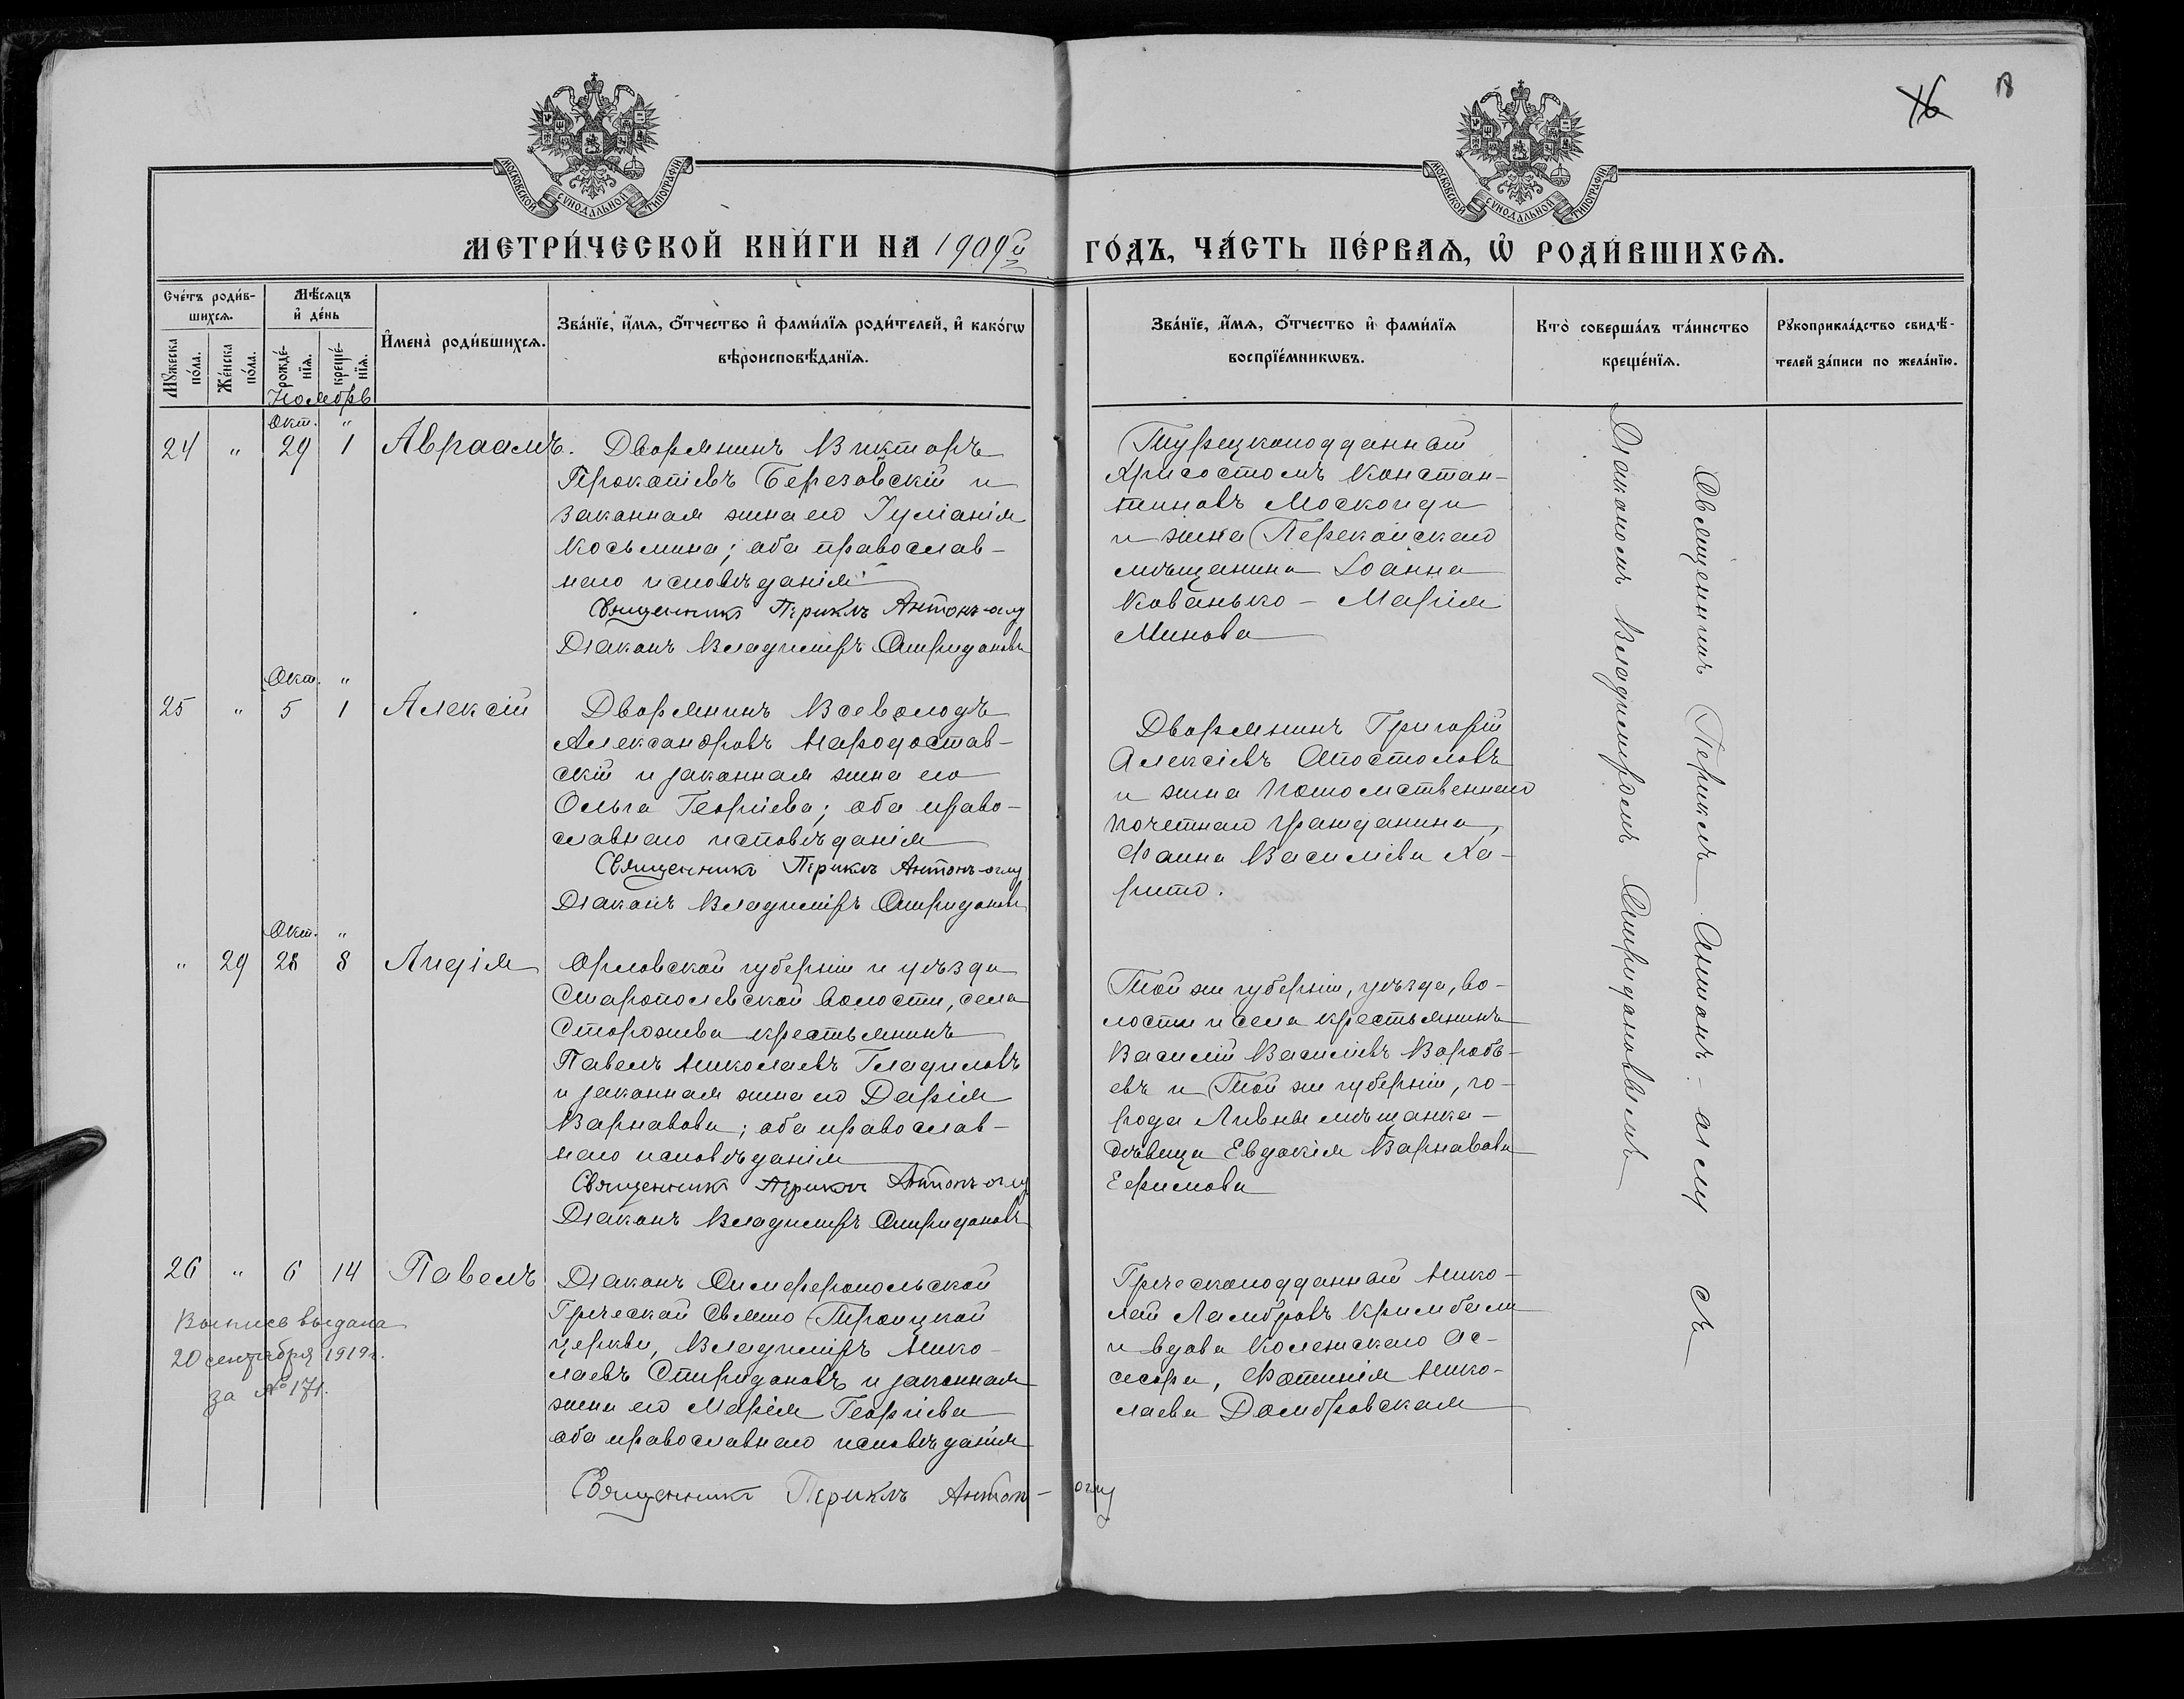 16
18
МОСКОВСКОЙ СѴНОДАЛЬНОЙ ТИПОГРАФІИ
МОСКОВСКОЙ СѴНОДАЛЬНОЙ ТИПОГРАФІИ
МЕТРИ́ЧЕСКОЙ КНИ́ГИ НА 1909й
ГО́ДЪ, ЧА́СТЬ ПЕ́РВАѦ, Ѡ҆ РОДИ́ВШИХСѦ.
Сче́тъ роди́в-
шихсѧ.
Мꙋ́жеска по́ла.
Же́нска по́ла.
Мѣ́сѧцъ
и҆ де́нь
рожде́-
нїѧ.
креще́-
нїѧ.
И҆мена̀ роди́вшихсѧ.
Зва́нїе, и҆́мѧ, ѻ҆́тчество и҆ фами́лїѧ роди́телей, и҆ како́гѡ
вѣроисповѣ́данїѧ.
Зва́нїе, и҆́мѧ, ѻ҆́тчество и҆ фами́лїѧ
воспрїе́мникѡвъ.
Кто̀ соверша́лъ та́инство
креще́нїѧ.
Рꙋкоприкла́дство свидѣ́-
телей за́писи по жела́нїю.
Ноябрь
Окт. "
24 " 29 1 Авраамъ.
Дворянинъ Викторъ
Прокопіевъ Березовскій и
законная жена его Іуліанія
Косьмина; оба православ-
наго исповѣданія
Священникъ Периклъ Антонъ-оглу
Діаконъ Владимиръ Спиридоновъ
Турецкоподданный
Хрисостомъ Констан-
тиновъ Москонди
и жена Перекопскаго
мѣщанина Іоанна
Кованько - Марія
Минова
Окт. "
25 " 5 1 Алексій
Дворянинъ Всеволодъ
Александровъ Народостав-
скій и законная жена его
Ольга Георгіева; оба право-
славнаго исповѣданія
Священникъ Периклъ Антонъ-оглу
Діаконъ Владимиръ Спиридоновъ
Дворянинъ Григорій
Алексіевъ Апостоловъ
и жена потомственнаго
почетнаго гражданина,
Фаина Василіева Ха-
рито.
Окт. "
" 29 28 8 Лидія
Орловской губерніи и уѣзда
Старопольевской волости, села
Сторожева крестьянинъ
Павелъ Николаевъ Гладиловъ
и законная жена его Дарія
Варнавова; оба православ-
наго исповѣданія
Священникъ Периклъ Антонъ-оглу
Діаконъ Владимиръ Спиридоновъ
Той же губерніи, уѣзда, во-
лости и села крестьянинъ
Василій Василіевъ Воробь-
евъ и той же губерніи, го-
рода Ливны мѣщанка-
дѣвица Евдокія Варнавова
Ефимова
26 " 6 14 Павелъ
Діаконъ Симферопольской
Греческой Свято Троицкой
церкви, Владимиръ Нико-
лаевъ Спиридоновъ и законная
жена его Марія Георгіева
оба православнаго исповѣданія
Священникъ Периклъ Антонъ-оглу
Греческоподданный Нико-
лай Ламбровъ Кримбали
и вдова Колежскаго ас-
сесора, Фотинія Нико-
лаева Домбровская
Выпись выдана
20 сентября 1919 г.
за № 171.
Священникъ Периклъ Антонъ-оглу съ
Діакономъ Владимиромъ Спиридоновымъ